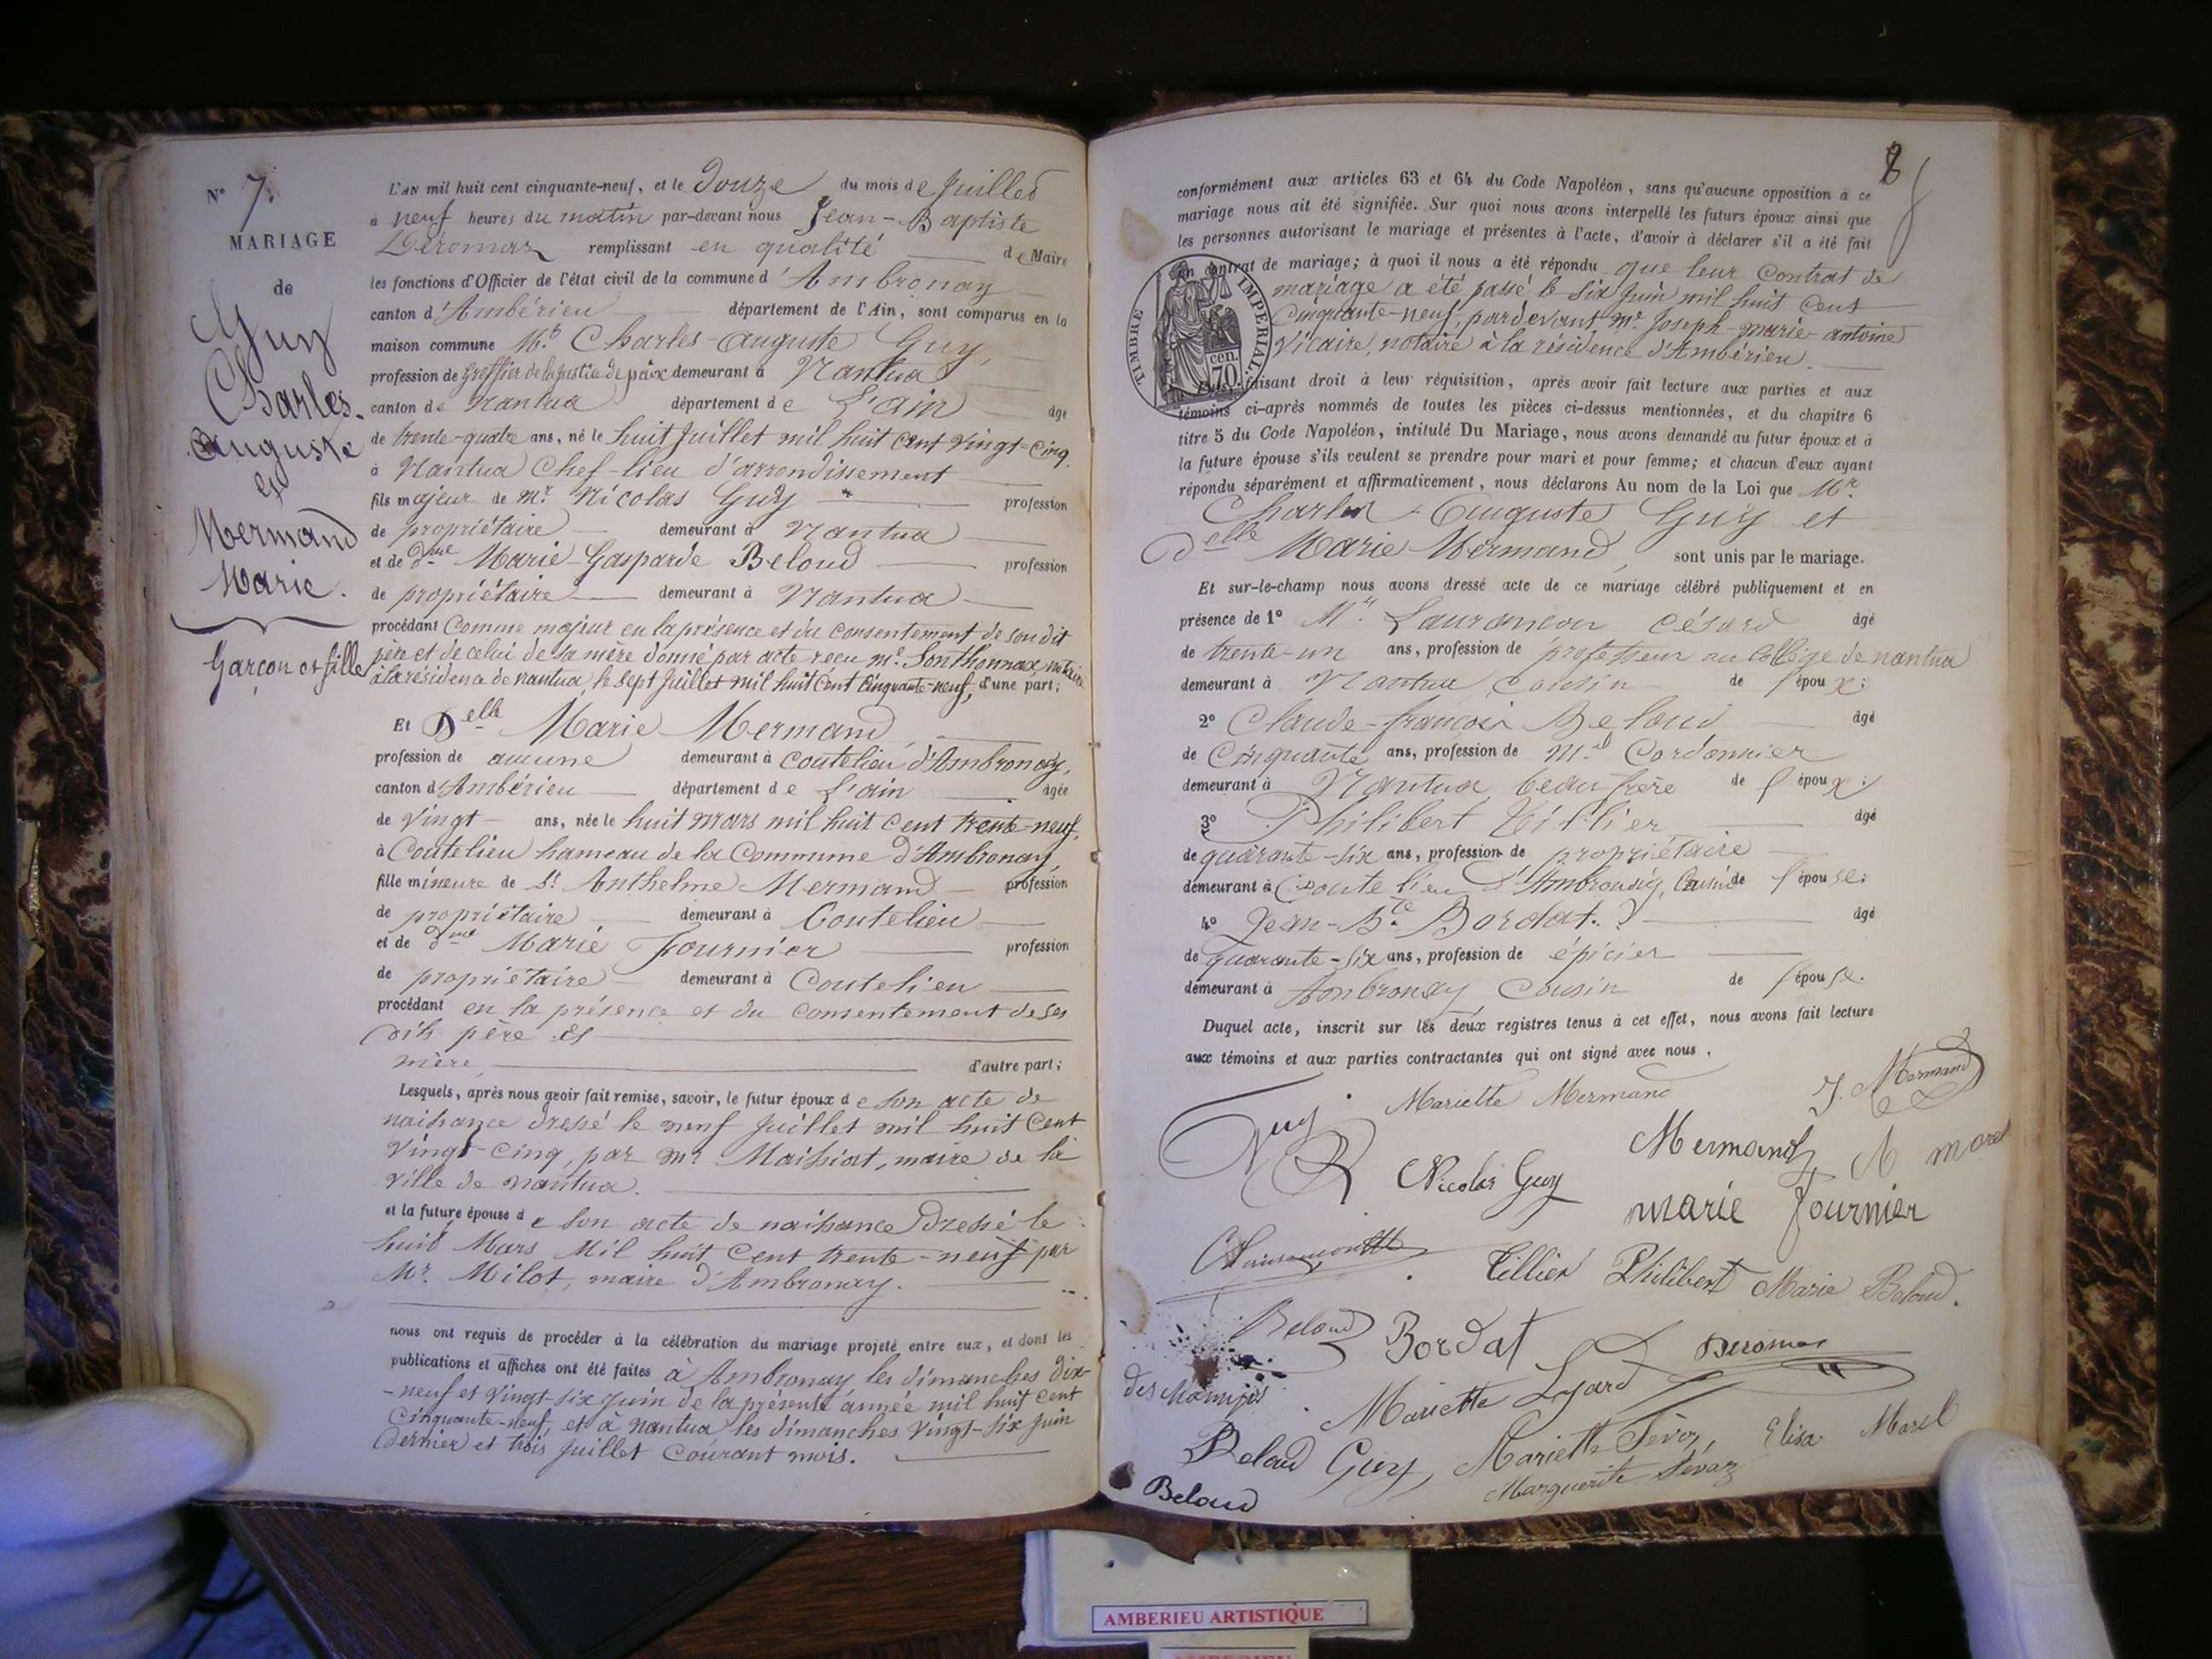 N° 7.
MARIAGE
de
Guy
Charles.
Auguste
et
Mermand
Marie.
Garçon et fille
L'AN mil huit cent cinquante-neuf, et le Douze du mois de Juillet
à neuf heures du matin par-devant nous Jean-Baptiste
Deromaz remplissant en qualité de Maire
les fonctions d'Officier de l'état civil de la commune d'Ambronay
canton d'Ambérieu département de l'Ain, sont comparus en la
maison commune Mr. Charles-Auguste Guy,
profession de Greffier de la Justice de paix demeurant à Nantua
canton de Nantua département de L'ain âgé
de trente-quatre ans, né le huit Juillet mil huit cent vingt-cinq.
à Nantua Chef-lieu d'arrondissement
fils majeur de Mr. Nicolas Guy profession
de propriétaire demeurant à Nantua
et de dme Marie-Gasparde Beloud profession
de propriétaire demeurant à Nantua
procédant Comme majeur en la présence et du consentement de son dit
père et de celui de sa mère donné par acte reçu me. Sonthonnax notaire
à la résidence de nantua, le sept Juillet mil huit cent cinquante-neuf, d'une part;
Et Delle Marie Mermand
profession de aucune demeurant à Coutelieu d'Ambronay,
canton d'Ambérieu département de L'ain âgée
de vingt ans, née le huit mars mil huit cent trente-neuf,
à Coutelieu hameau de la Commune d'Ambronay,
fille mineure de Sr. Anthelme Mermand profession
de propriétaire demeurant à Coutelieu
et de dme Marie Fournier profession
de propriétaire demeurant à Coutelieu
procédant en la présence et du consentement de ses
dits père et
mère, d'autre part;
Lesquels, après nous avoir fait remise, savoir, le futur époux de son acte de
naissance dressé le neuf Juillet mil huit cent
vingt-cinq, par mr. Maissiat, maire de la
ville de nantua.
et la future épouse de son acte de naissance Dressé le
huit Mars Mil huit cent trente-neuf par
Mr. Milot, maire d'Ambronay.
nous ont requis de procéder à la célébration du mariage projeté entre eux, et dont les
publications et affiches ont été faites à Ambronay les dimanches dix-
-neuf et vingt-six juin de la présente année mil huit cent
cinquante-neuf, et à nantua les dimanches vingt-six juin
dernier et trois juillet courant mois.
8
conformément aux articles 63 et 64 du Code Napoléon, sans qu'aucune opposition à ce
mariage nous ait été signifiée. Sur quoi nous avons interpellé les futurs époux ainsi que
les personnes autorisant le mariage et présentes à l'acte, d'avoir à déclarer s'il a été fait
un contrat de mariage; à quoi il nous a été répondu que leur contrat de
mariage a été passé le six juin mil huit cent
cinquante-neuf, pardevant me. Joseph-marie antoine
Vicaire, notaire à la résidence d'Ambérieu.
TIMBRE IMPÉRIAL.
cen.
70
Puis, faisant droit à leur réquisition, après avoir fait lecture aux parties et aux
témoins ci-après nommés de toutes les pièces ci-dessus mentionnées, et du chapitre 6
titre 5 du Code Napoléon, intitulé Du Mariage, nous avons demandé au futur époux et à
la future épouse s'ils veulent se prendre pour mari et pour femme; et chacun d'eux ayant
répondu séparément et affirmativement, nous déclarons Au nom de la Loi que Mr.
Charles Auguste Guy et
Delle Marie Mermand, sont unis par le mariage.
Et sur-le-champ nous avons dressé acte de ce mariage célébré publiquement et en
présence de 1° Mr. Laurançon César âgé
de trente-un ans, profession de professeur au Collège de nantua
demeurant à Nantua cousin de l'époux;
2° Claude-françois Beloud âgé
de Cinquante ans, profession de Md Cordonnier
demeurant à Nantua beau frère de l'époux;
3° Philibert Tillier âgé
de quarante-six ans, profession de propriétaire
demeurant à Coutelieu d'Ambronay, Cousin de l'épouse;
4° Jean-Bte Bordat. âgé
de quarante-six ans, profession de épicier
demeurant à Ambronay Cousin de l'épouse.
Duquel acte, inscrit sur les deux registres tenus à cet effet, nous avons fait lecture
aux témoins et aux parties contractantes qui ont signé avec nous.
Mariette Mermand
J. Mermand
Guy
Mermand
Morel
Nicolas Guy
marie fournier
Tillier Philibert
Marie Beloud.
Beloud
Bordat
Deromas
Mariette Lyard
Beloud
Guy,
Mariette Sévoz,
Elisa Morel
Marguerite Sévoz
Beloud
AMBERIEU ARTISTIQUE